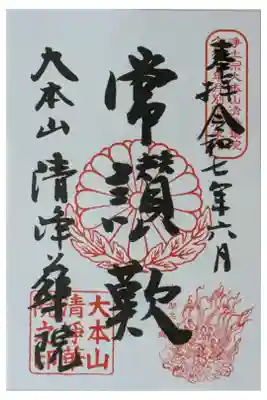 奉拝 令和七年六月
常讃歎
大本山 清浄華院
大本山
清浄華
院之印